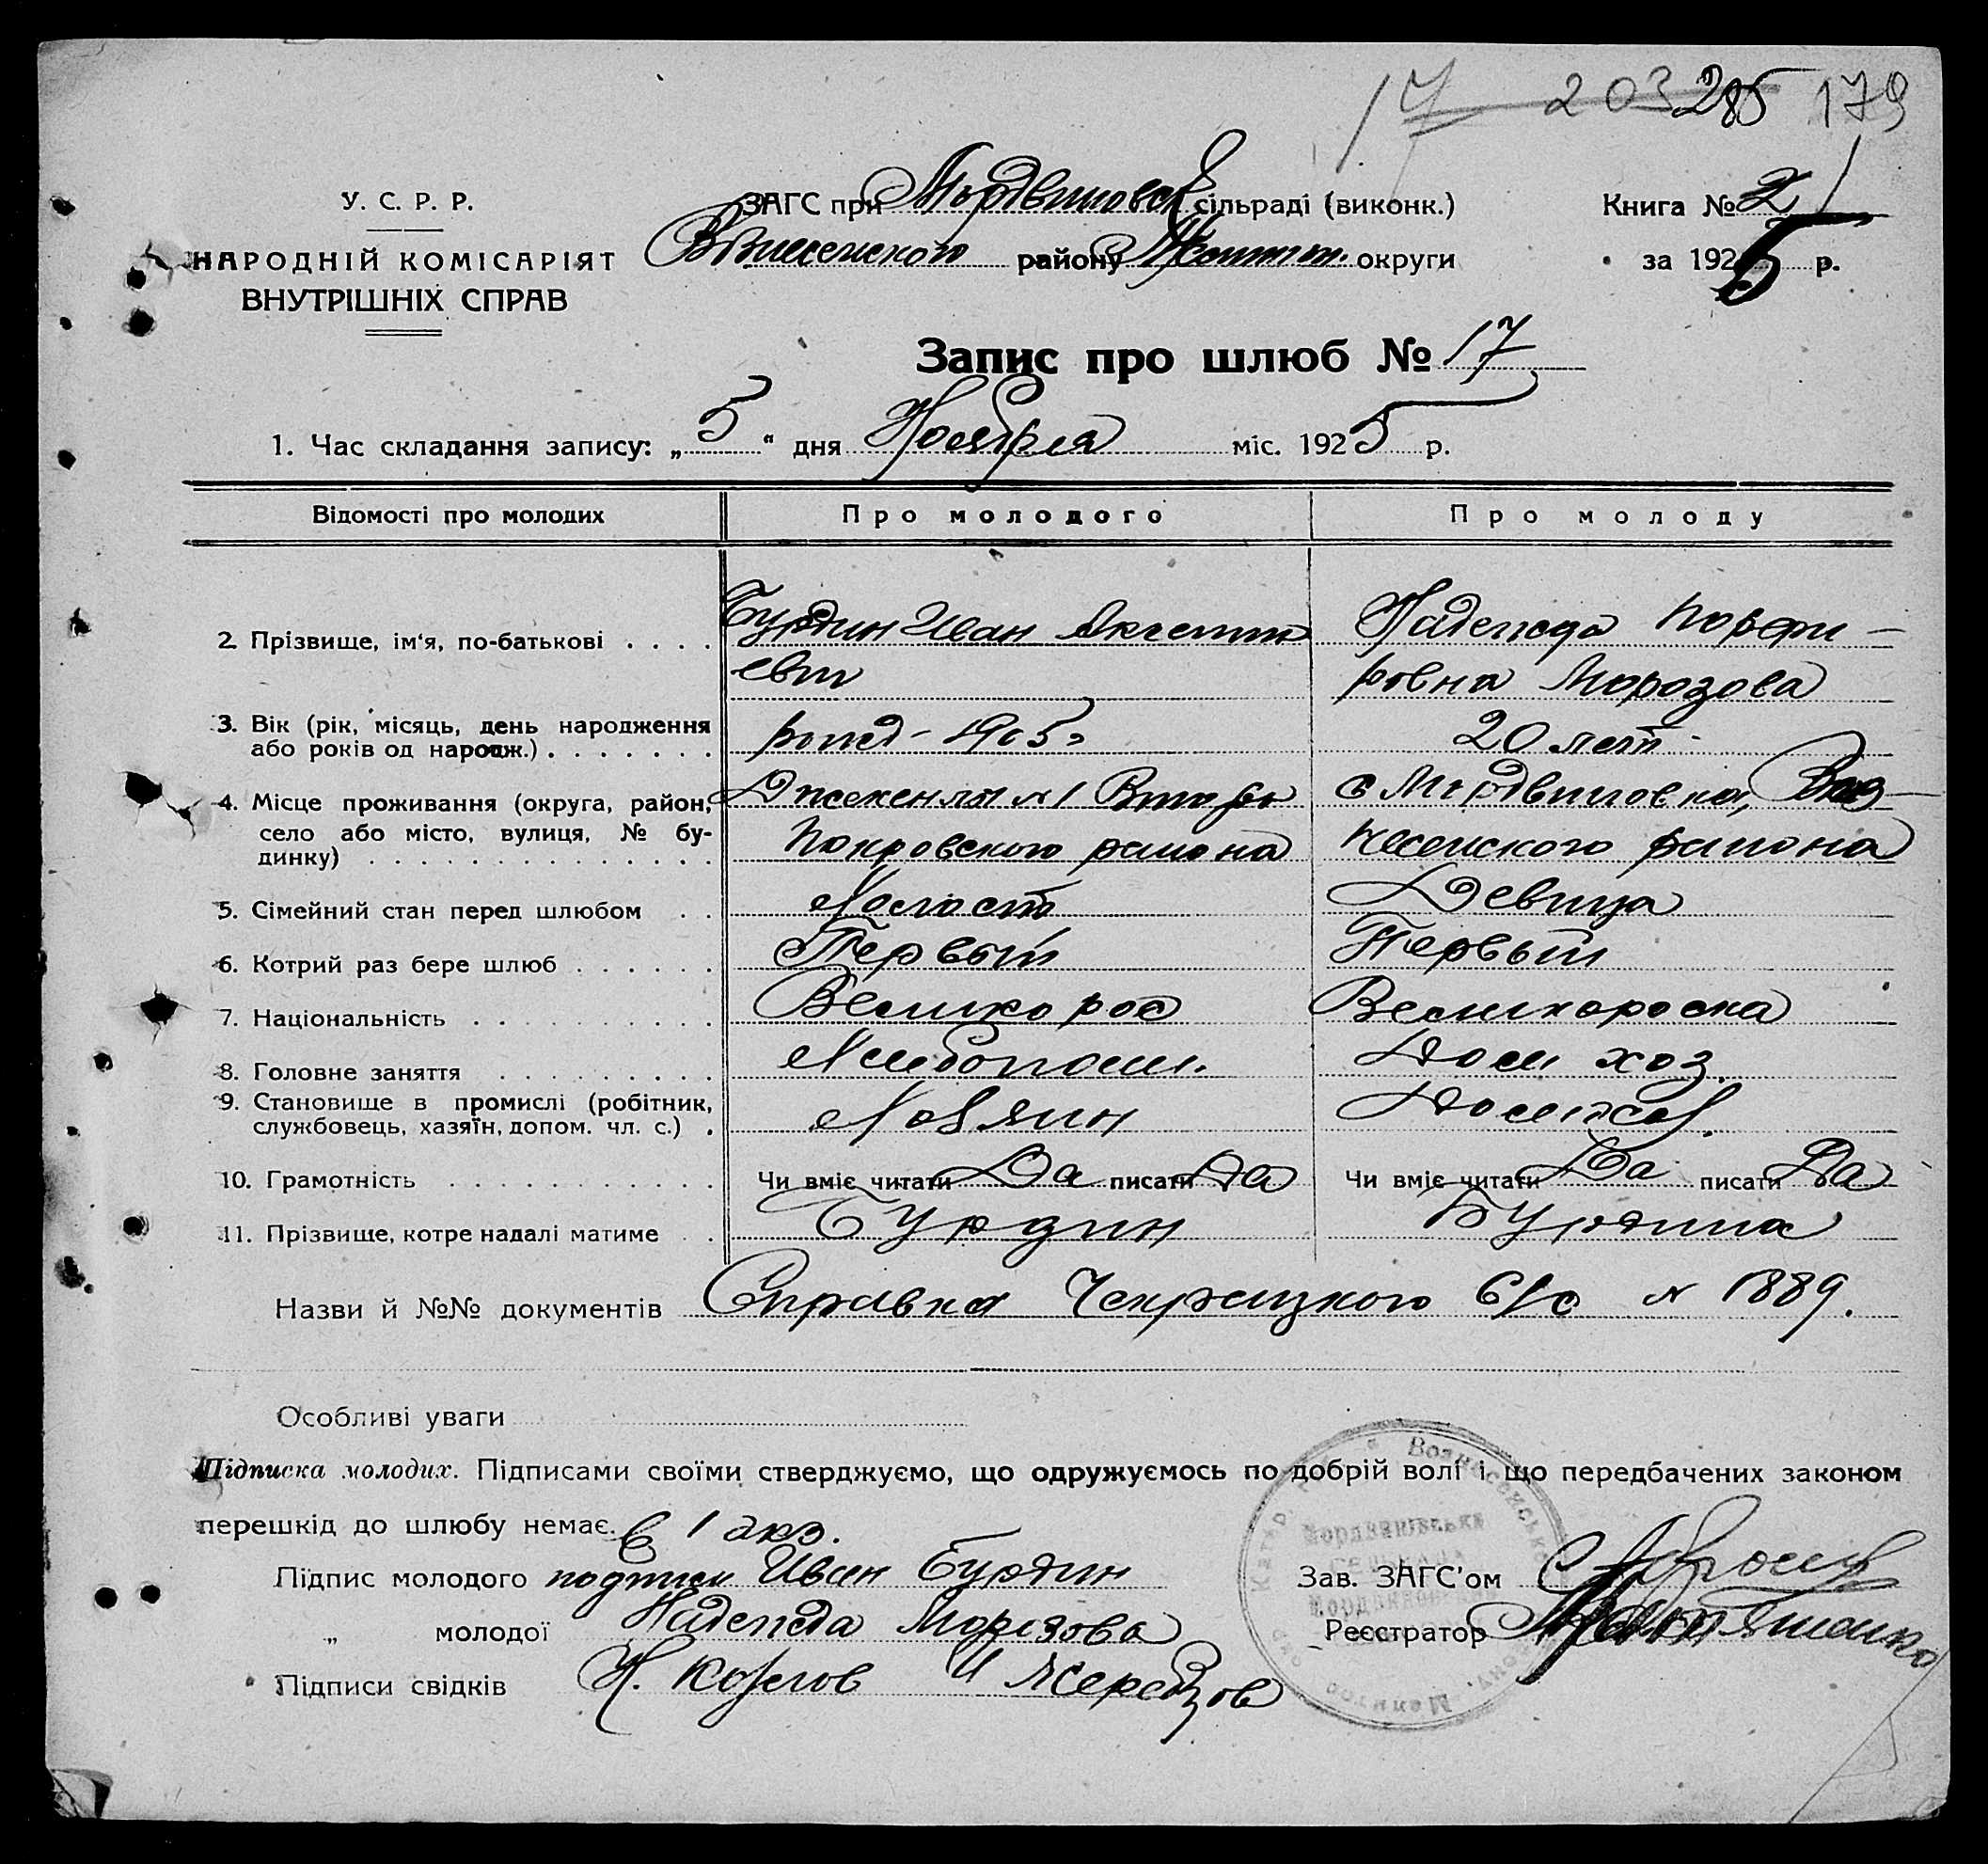 17 203 285 179
У. С. Р. Р.
НАРОДНІЙ КОМІСАРІЯТ
ВНУТРІШНІХ СПРАВ
ЗАГС при Мордвиновск сільраді (виконк.)
району округи
Книга №
за 1925 р.
Запис про шлюб № 17
1. Час складання запису: „5“ дня Ноября міс. 1925 р.
Відомості про молодих Про молодого Про молоду
2. Прізвище, ім'я, по-батькові . . . . Бурдин Иван Надежда Порфи-
ровна Морозова
3. Вік (рік, місяць, день народження
або років од народж.) . . . . . . . рожд - 1905 20 лет
4. Місце проживання (округа, район,
село або місто, вулиця, № бу-
динку) . . . . . . . . . . . . . . .
№ 1 с Мордвиновка, Воз-
Покровского района несенского района
5. Сімейний стан перед шлюбом . . Холост Девица
6. Котрий раз бере шлюб . . . . . . Первый Первый
7. Національність . . . . . . . . . . Великорос Великороска
8. Головне заняття . . . . . . . . . Хлебопаш. Дом хоз.
9. Становище в промислі (робітник,
службовець, хазяїн, допом. чл. с.) .
10. Грамотність . . . . . . . . . . . Чи вміє читати Да писати Да Чи вміє читати Да писати Да
11. Прізвище, котре надалі матиме . . Бурдин Бурдина
Назви й №№ документів Справка с/с № 1889.
Особливі уваги
Підписка молодих. Підписами своїми стверджуємо, що одружуємось по добрій волі і що передбачених законом
перешкід до шлюбу немає. в 1 экз.
Підпис молодого подписи Иван Бурдин
„ молодої Надежда Морозова
Підписи свідків Н. Козлов И
Зав. ЗАГС'ом
Реєстратор